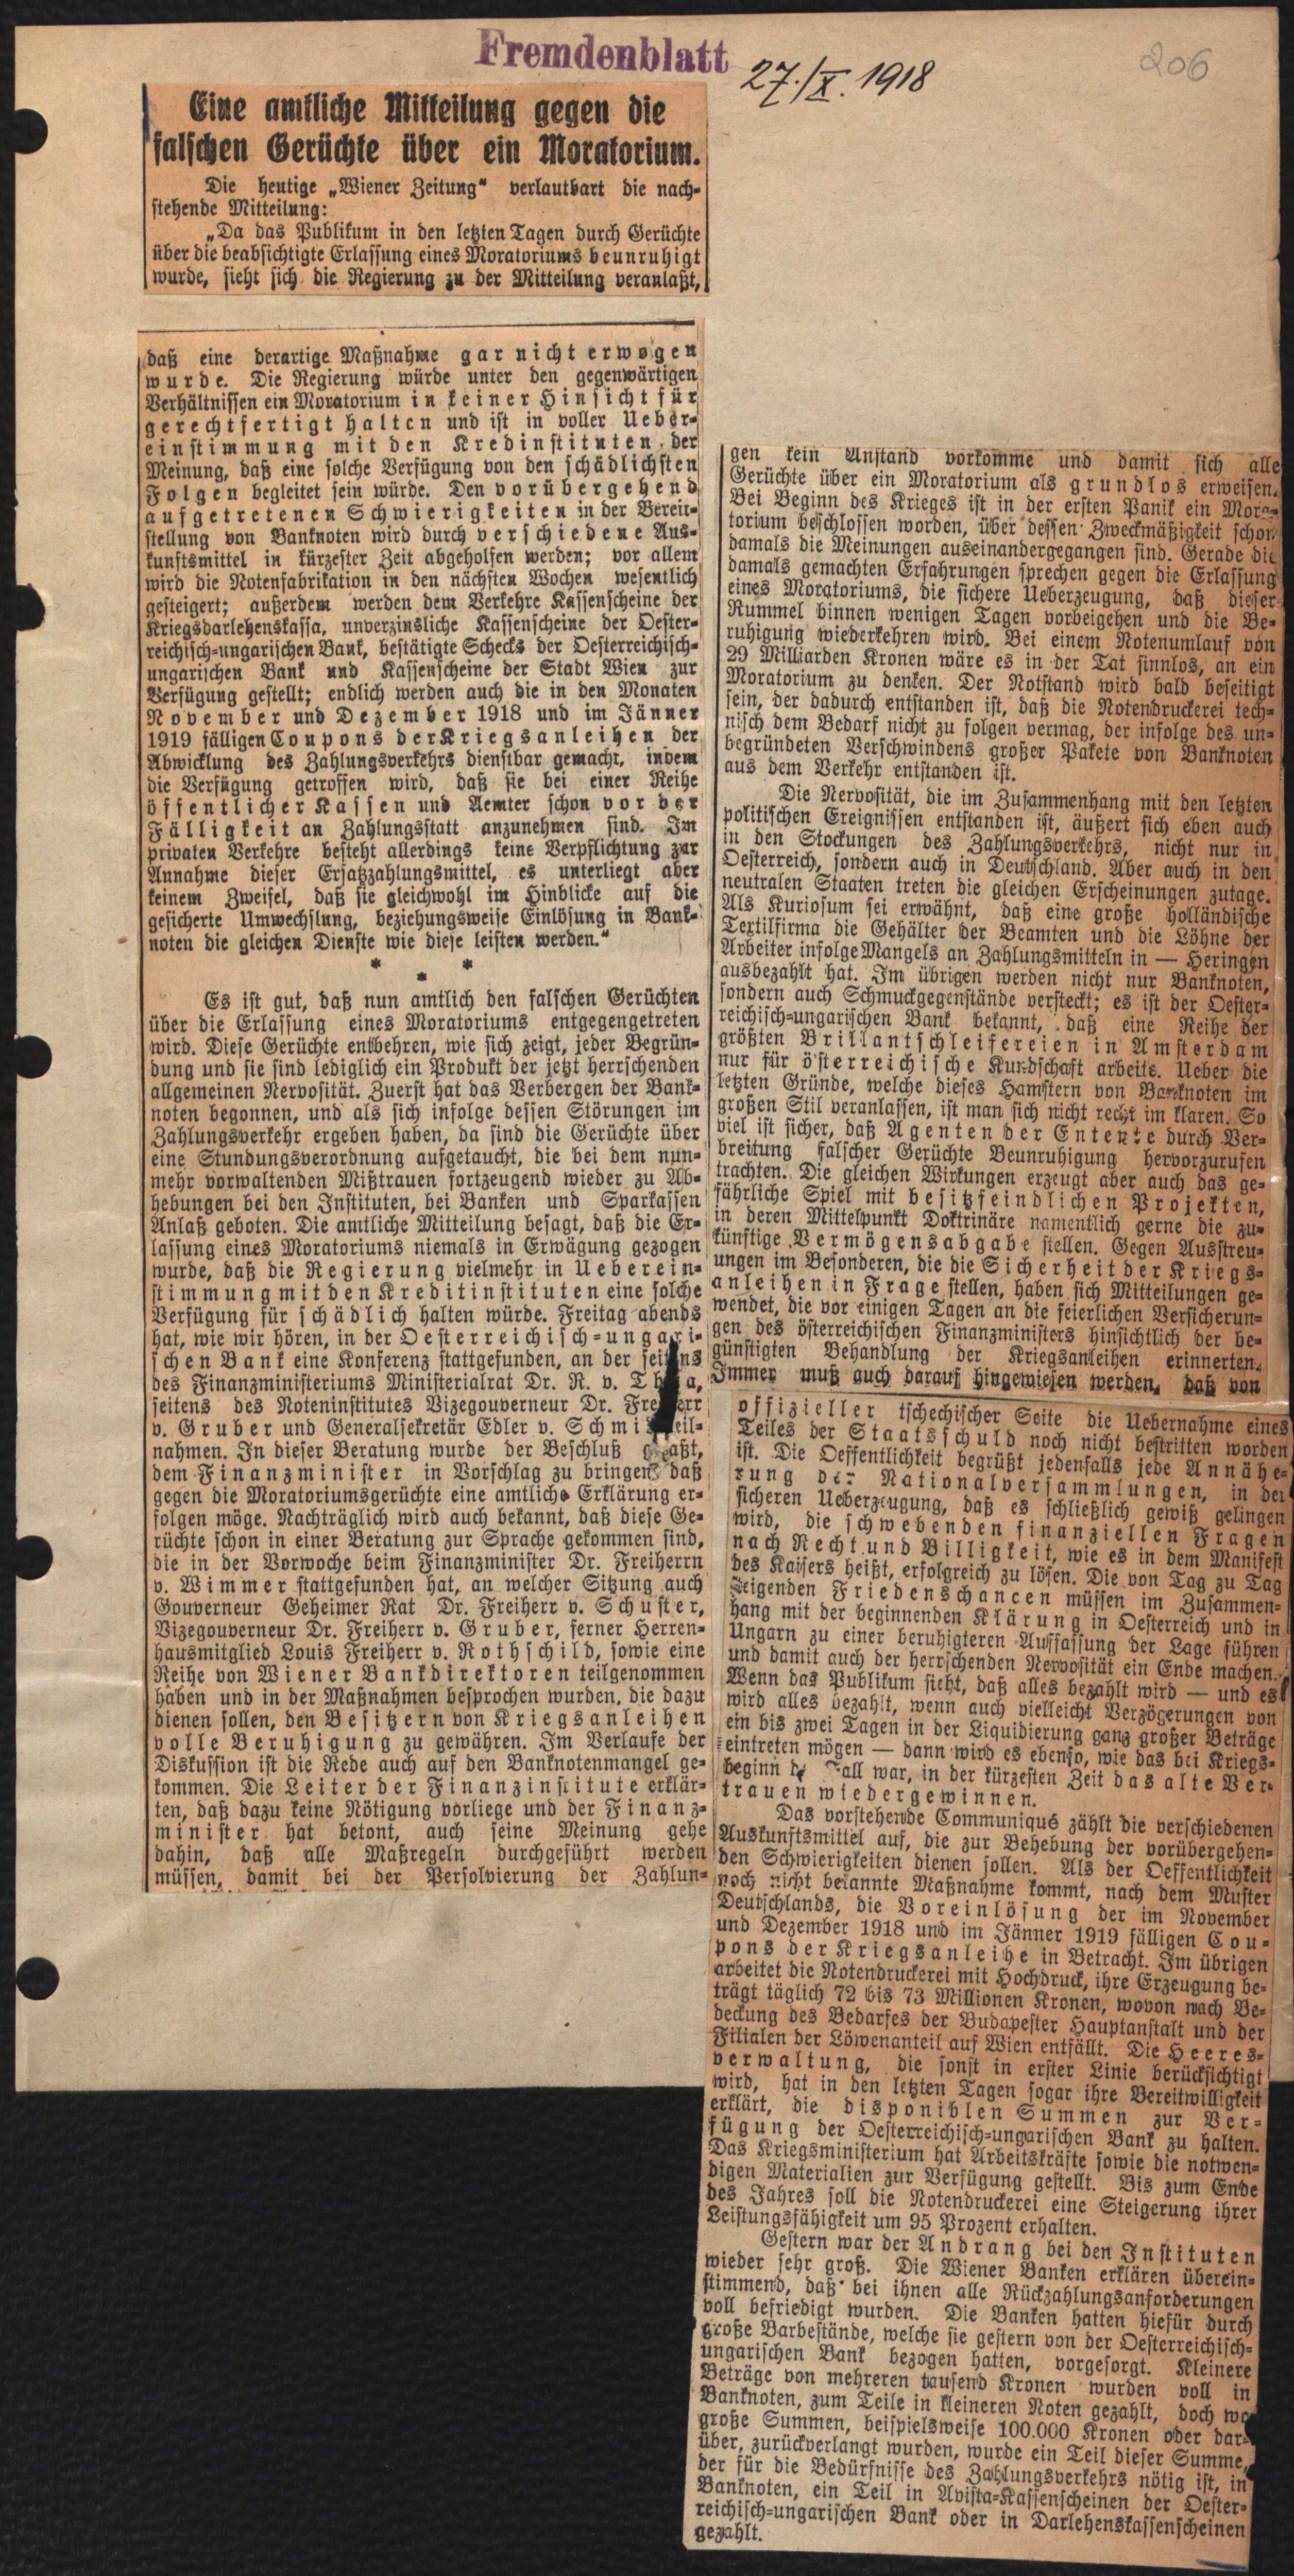 Fremdenblatt
27./X. 1918
206
Eine amtliche Mitteilung gegen die
falschen Gerüchte über ein Moratorium.
Die heutige „Wiener Zeitung“ verlautbart die nach-
stehende Mitteilung:
„Da das Publikum in den letzten Tagen durch Gerüchte
über die beabsichtigte Erlassung eines Moratoriums beunruhigt
wurde, sieht sich die Regierung zu der Mitteilung veranlaßt,
daß eine derartige Maßnahme gar nicht erwogen
wurde. Die Regierung würde unter den gegenwärtigen
Verhältnissen ein Moratorium in keiner Hinsicht für
gerechtfertigt halten und ist in voller Ueber-
einstimmung mit den Kredinstituten der
Meinung, daß eine solche Verfügung von den schädlichsten
Folgen begleitet sein würde. Den vorübergehend
aufgetretenen Schwierigkeiten in der Bereit-
stellung von Banknoten wird durch verschiedene Aus-
kunftsmittel in kürzester Zeit abgeholfen werden; vor allem
wird die Notenfabrikation in den nächsten Wochen wesentlich
gesteigert; außerdem werden dem Verkehre Kassenscheine der
Kriegsdarlehenskassa, unverzinsliche Kassenscheine der Oester-
reichisch-ungarischen Bank, bestätigte Schecks der Oesterreichisch-
ungarischen Bank und Kassenscheine der Stadt Wien zur
Verfügung gestellt; endlich werden auch die in den Monaten
November und Dezember 1918 und im Jänner
1919 fälligen Coupons der Kriegsanleihen der
Abwicklung des Zahlungsverkehrs dienstbar gemacht, indem
die Verfügung getroffen wird, daß sie bei einer Reihe
öffentlicher Kassen und Aemter schon vor der
Fälligkeit an Zahlungsstatt anzunehmen sind. Im
privaten Verkehre besteht allerdings keine Verpflichtung zur
Annahme dieser Ersatzzahlungsmittel, es unterliegt aber
keinem Zweifel, daß sie gleichwohl im Hinblicke auf die
gesicherte Umwechslung, beziehungsweise Einlösung in Bank-
noten die gleichen Dienste wie diese leisten werden.“
* * *
Es ist gut, daß nun amtlich den falschen Gerüchten
über die Erlassung eines Moratoriums entgegengetreten
wird. Diese Gerüchte entbehren, wie sich zeigt, jeder Begrün-
dung und sie sind lediglich ein Produkt der jetzt herrschenden
allgemeinen Nervosität. Zuerst hat das Verbergen der Bank-
noten begonnen, und als sich infolge dessen Störungen im
Zahlungsverkehr ergeben haben, da sind die Gerüchte über
eine Stundungsverordnung aufgetaucht, die bei dem nun-
mehr vorwaltenden Mißtrauen fortzeugend wieder zu Ab-
hebungen bei den Instituten, bei Banken und Sparkassen
Anlaß geboten. Die amtliche Mitteilung besagt, daß die Er-
lassung eines Moratoriums niemals in Erwägung gezogen
wurde, daß die Regierung vielmehr in Ueberein-
stimmung mit den Kreditinstituten eine solche
Verfügung für schädlich halten würde. Freitag abends
hat, wie wir hören, in der Oesterreichisch-ungari-
schen Bank eine Konferenz stattgefunden, an der seitens
des Finanzministeriums Ministerialrat Dr. R. v.
seitens des Noteninstitutes Vizegouverneur Dr. Freiherr
v. Gruber und Generalsekretär Edler v. teil-
nahmen. In dieser Beratung wurde der Beschluß gefaßt,
dem Finanzminister in Vorschlag zu bringen, daß
gegen die Moratoriumsgerüchte eine amtliche Erklärung er-
folgen möge. Nachträglich wird auch bekannt, daß diese Ge-
rüchte schon in einer Beratung zur Sprache gekommen sind,
die in der Vorwoche beim Finanzminister Dr. Freiherrn
v. Wimmer stattgefunden hat, an welcher Sitzung auch
Gouverneur Geheimer Rat Dr. Freiherr v. Schuster,
Vizegouverneur Dr. Freiherr v. Gruber, ferner Herren-
hausmitglied Louis Freiherr v. Rothschild, sowie eine
Reihe von Wiener Bankdirektoren teilgenommen
haben und in der Maßnahmen besprochen wurden, die dazu
dienen sollen, den Besitzern von Kriegsanleihen
volle Beruhigung zu gewähren. Im Verlaufe der
Diskussion ist die Rede auch auf den Banknotenmangel ge-
kommen. Die Leiter der Finanzinstitute erklär-
ten, daß dazu keine Nötigung vorliege und der Finanz-
minister hat betont, auch seine Meinung gehe
dahin, daß alle Maßregeln durchgeführt werden
müssen, damit bei der Persolvierung der Zahlun-
gen kein Anstand vorkomme und damit sich alle
Gerüchte über ein Moratorium als grundlos erweisen.
Bei Beginn des Krieges ist in der ersten Panik ein Mora-
torium beschlossen worden, über dessen Zweckmäßigkeit schon
damals die Meinungen auseinandergegangen sind. Gerade die
damals gemachten Erfahrungen sprechen gegen die Erlassung
eines Moratoriums, die sichere Ueberzeugung, daß dieser
Rummel binnen wenigen Tagen vorbeigehen und die Be-
ruhigung wiederkehren wird. Bei einem Notenumlauf von
29 Milliarden Kronen wäre es in der Tat sinnlos, an ein
Moratorium zu denken. Der Notstand wird bald beseitigt
sein, der dadurch entstanden ist, daß die Notendruckerei tech-
nisch dem Bedarf nicht zu folgen vermag, der infolge des un-
begründeten Verschwindens großer Pakete von Banknoten
aus dem Verkehr entstanden ist.
Die Nervosität, die im Zusammenhang mit den letzten
politischen Ereignissen entstanden ist, äußert sich eben auch
in den Stockungen des Zahlungsverkehrs, nicht nur in
Oesterreich, sondern auch in Deutschland. Aber auch in den
neutralen Staaten treten die gleichen Erscheinungen zutage.
Als Kuriosum sei erwähnt, daß eine große holländische
Textilfirma die Gehälter der Beamten und die Löhne der
Arbeiter infolge Mangels an Zahlungsmitteln in — Heringen
ausbezahlt hat. Im übrigen werden nicht nur Banknoten,
sondern auch Schmuckgegenstände versteckt; es ist der Oester-
reichisch-ungarischen Bank bekannt, daß eine Reihe der
größten Brillantschleifereien in Amsterdam
nur für österreichische Kundschaft arbeite. Ueber die
letzten Gründe, welche dieses Hamstern von Banknoten im
großen Stil veranlassen, ist man sich nicht recht im klaren. So
viel ist sicher, daß Agenten der Entente durch Ver-
breitung falscher Gerüchte Beunruhigung hervorzurufen
trachten. Die gleichen Wirkungen erzeugt aber auch das ge-
fährliche Spiel mit besitzfeindlichen Projekten,
in deren Mittelpunkt Doktrinäre namentlich gerne die zu-
künftige Vermögensabgabe stellen. Gegen Ausstreu-
ungen im Besonderen, die die Sicherheit der Kriegs-
anleihen in Frage stellen, haben sich Mitteilungen ge-
wendet, die vor einigen Tagen an die feierlichen Versicherun-
gen des österreichischen Finanzministers hinsichtlich der be-
günstigten Behandlung der Kriegsanleihen erinnerten.
Immer muß auch darauf hingewiesen werden, daß von
offizieller tschechischer Seite die Uebernahme eines
Teiles der Staatsschuld noch nicht bestritten worden
ist. Die Oeffentlichkeit begrüßt jedenfalls jede Annähe-
rung der Nationalversammlungen, in der
sicheren Ueberzeugung, daß es schließlich gewiß gelingen
wird, die schwebenden finanziellen Fragen
nach Recht und Billigkeit, wie es in dem Manifest
des Kaisers heißt, erfolgreich zu lösen. Die von Tag zu Tag
steigenden Friedenschancen müssen im Zusammen-
hang mit der beginnenden Klärung in Oesterreich und in
Ungarn zu einer beruhigteren Auffassung der Lage führen
und damit auch der herrschenden Nervosität ein Ende machen.
Wenn das Publikum sieht, daß alles bezahlt wird — und es
wird alles bezahlt, wenn auch vielleicht Verzögerungen von
ein bis zwei Tagen in der Liquidierung ganz großer Beträge
eintreten mögen — dann wird es ebenso, wie das bei Kriegs-
beginn der Fall war, in der kürzesten Zeit das alte Ver-
trauen wiedergewinnen.
Das vorstehende Communiqué zählt die verschiedenen
Auskunftsmittel auf, die zur Behebung der vorübergehen-
den Schwierigkeiten dienen sollen. Als der Oeffentlichkeit
noch nicht bekannte Maßnahme kommt, nach dem Muster
Deutschlands, die Voreinlösung der im November
und Dezember 1918 und im Jänner 1919 fälligen Cou-
pons der Kriegsanleihe in Betracht. Im übrigen
arbeitet die Notendruckerei mit Hochdruck, ihre Erzeugung be-
trägt täglich 72 bis 73 Millionen Kronen, wovon nach Be-
deckung des Bedarfes der Budapester Hauptanstalt und der
Filialen der Löwenanteil auf Wien entfällt. Die Heeres-
verwaltung, die sonst in erster Linie berücksichtigt
wird, hat in den letzten Tagen sogar ihre Bereitwilligkeit
erklärt, die disponiblen Summen zur Ver-
fügung der Oesterreichisch-ungarischen Bank zu halten.
Das Kriegsministerium hat Arbeitskräfte sowie die notwen-
digen Materialien zur Verfügung gestellt. Bis zum Ende
des Jahres soll die Notendruckerei eine Steigerung ihrer
Leistungsfähigkeit um 95 Prozent erhalten.
Gestern war der Andrang bei den Instituten
wieder sehr groß. Die Wiener Banken erklären überein-
stimmend, daß bei ihnen alle Rückzahlungsanforderungen
voll befriedigt wurden. Die Banken hatten hiefür durch
große Barbestände, welche sie gestern von der Oesterreichisch-
ungarischen Bank bezogen hatten, vorgesorgt. Kleinere
Beträge von mehreren tausend Kronen wurden voll in
Banknoten, zum Teile in kleineren Noten gezahlt, doch wo
große Summen, beispielsweise 100.000 Kronen oder dar-
über, zurückverlangt wurden, wurde ein Teil dieser Summe,
der für die Bedürfnisse des Zahlungsverkehrs nötig ist, in
Banknoten, ein Teil in Avista-Kassenscheinen der Oester-
reichisch-ungarischen Bank oder in Darlehenskassenscheinen
gezahlt.